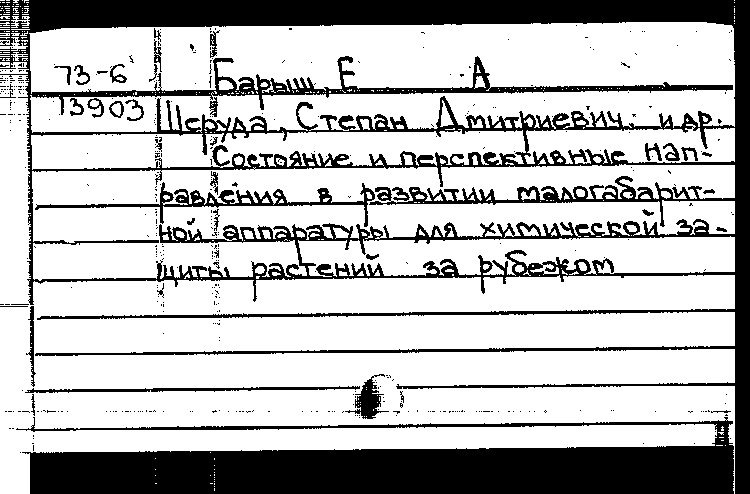 73-6 Барыш, Е А
13903 Шеруда, Степан Дмитриевич. и др.
Состояние и перспективные нап-
равления в развитии малогабарит-
ной аппаратуры для химической за-
щиты растений за рубежом